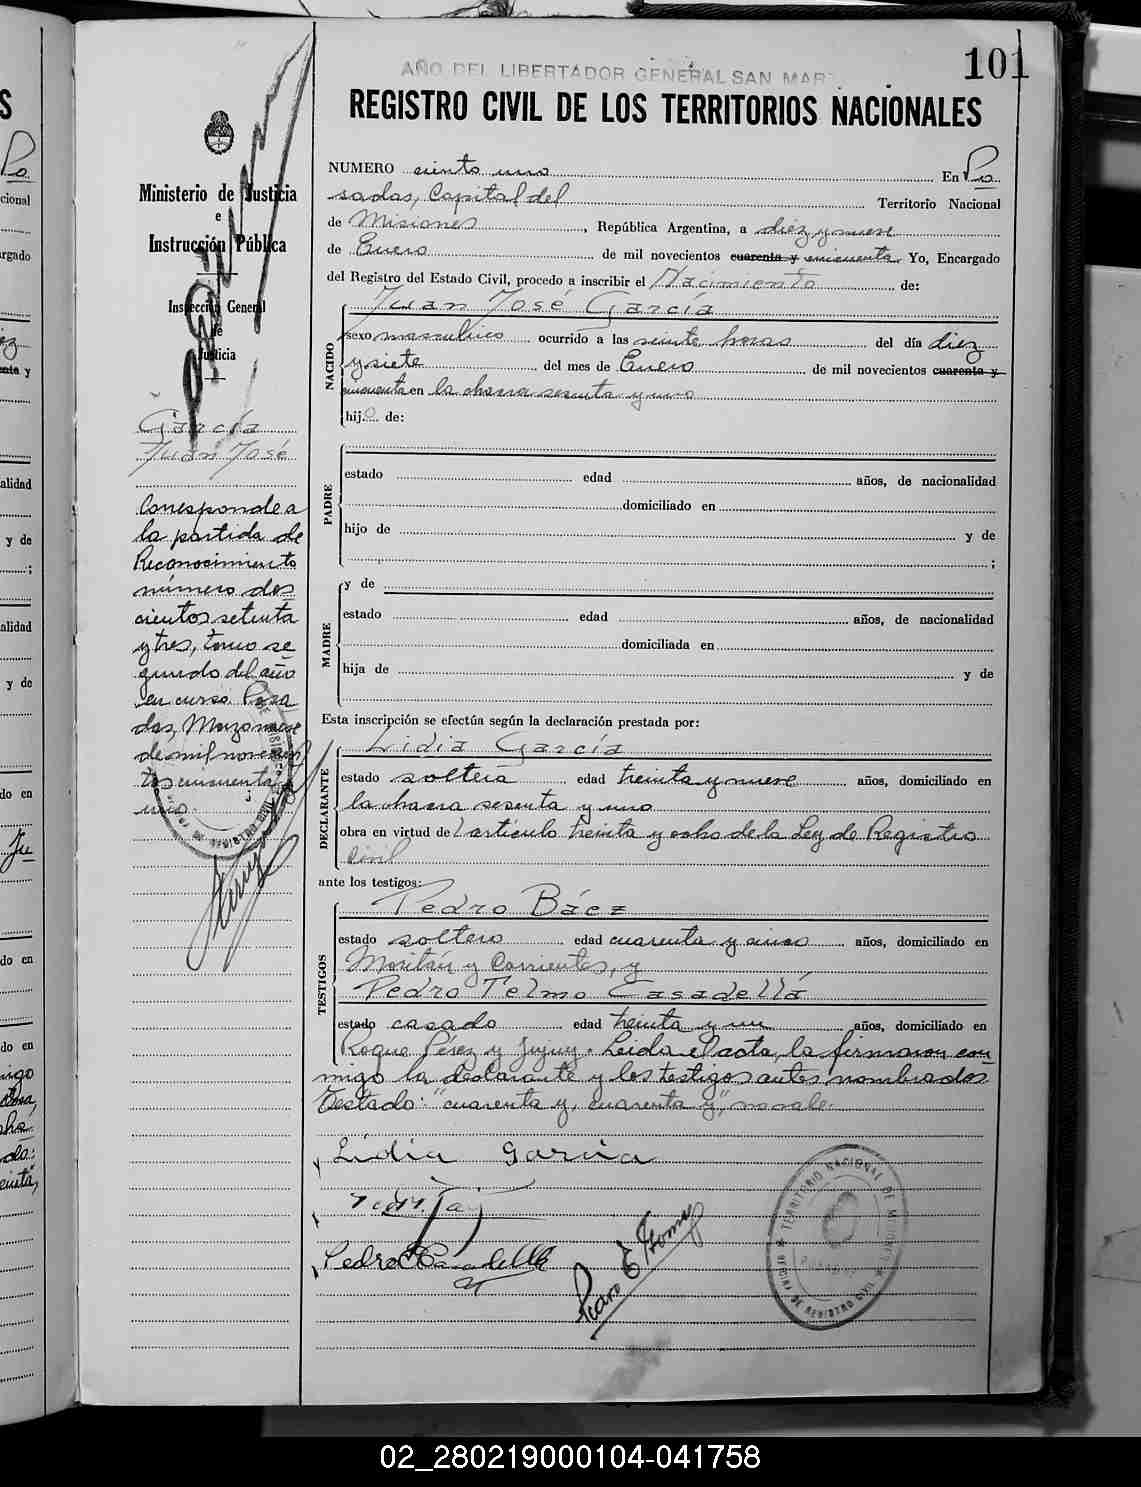 101
AÑO DEL LIBERTADOR GENERAL SAN MAR
REGISTRO CIVIL DE LOS TERRITORIOS NACIONALES
Ministerio de Justicia
e
Instrucción Pública
Inspección General
de
Justicia
García
Juan José
Corresponde a
la partida de
Reconocimiento
número dos
cientos setenta
y tres, tomo se
gundo del año
en curso. Posa
das, Marzo nueve
de mil novecien
tos cincuenta y
uno.
NUMERO ciento uno En Po
sadas, Capital del Territorio Nacional
de Misiones, República Argentina, a diez y nueve
de Enero de mil novecientos cuarenta y cincuenta Yo, Encargado
del Registro del Estado Civil, procedo a inscribir el Nacimiento de:
NACIDO
Juan José García
sexo masculino ocurrido a las veinte horas del día diez
y siete del mes de Enero de mil novecientos cuarenta y
cincuenta en la chacra sesenta y uno
hijo de:
PADRE
estado edad años, de nacionalidad
domiciliado en
hijo de y de
;
MADRE
y de
estado edad años, de nacionalidad
domiciliada en
hija de y de
Esta inscripción se efectúa según la declaración prestada por:
DECLARANTE
Lidia García
estado soltera edad treinta y nueve años, domiciliado en
la chacra sesenta y uno
obra en virtud del artículo treinta y ocho de la Ley de Registro
Civil
ante los testigos:
TESTIGOS
Pedro Báez
estado soltero edad cuarenta y cinco años, domiciliado en
y Corrientes, y
Pedro Telmo Casadellá
estado casado edad treinta y un años, domiciliado en
Roque Pérez y Jujuy. Leida el acta, la firmaron con
migo la declarante y los testigos antes nombrados
Testado: "cuarenta y, cuarenta y", no vale.
Lidia Garcia
Pedro Casadellá
TERRITORIO NACIONAL DE MISIONES
DE REGISTRO CIVIL
02_280219000104-041758